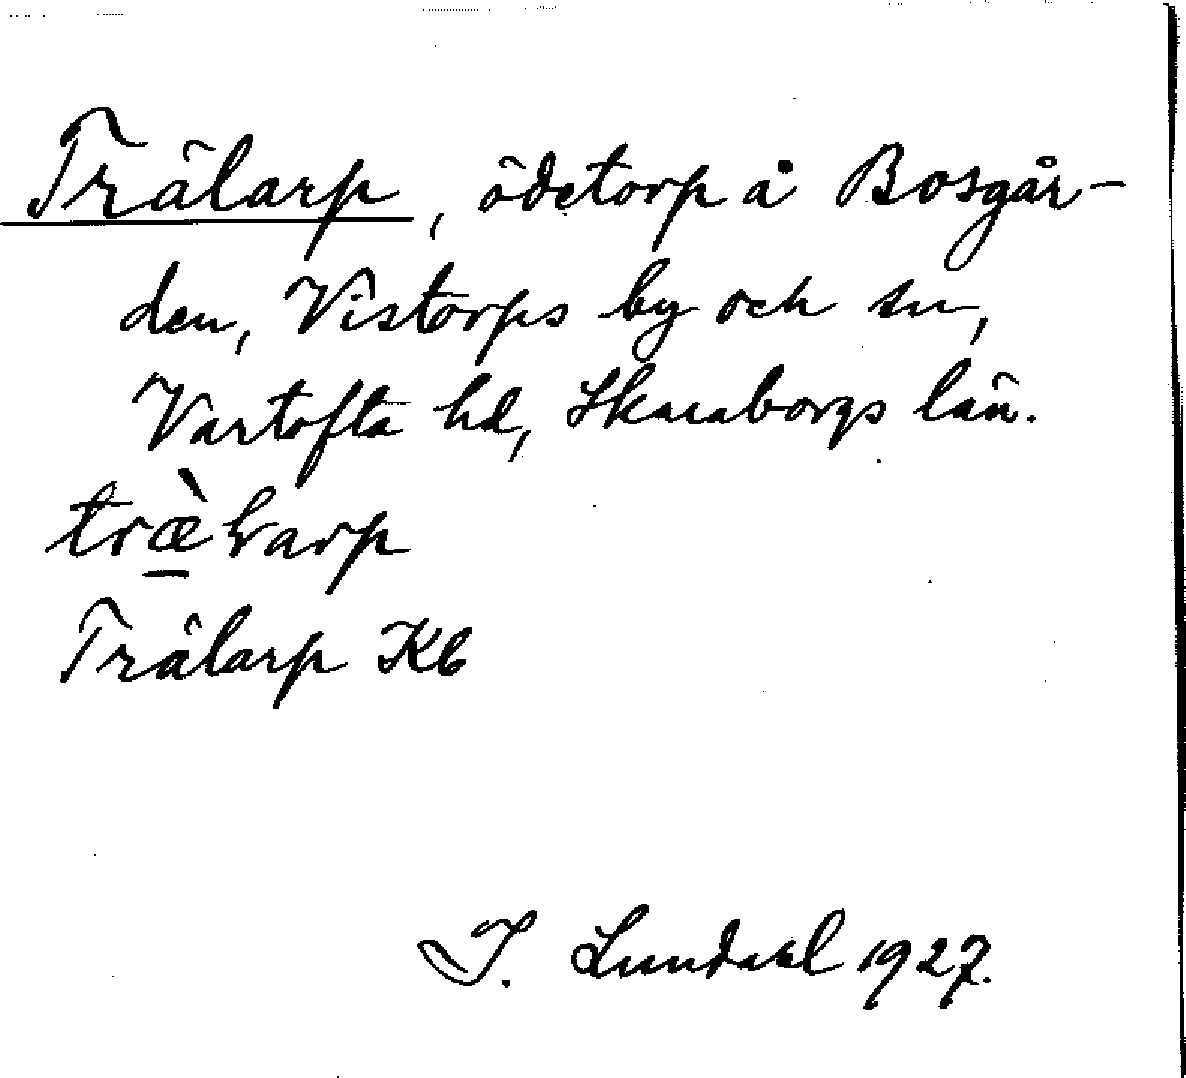 Trälarp, ödetorp å Bosgår-
den, Vistorps by och sn,
Vartofta hd, Skaraborgs län.
træ̀ƚarp
Trälarp Kb
I. Lundahl 1927.